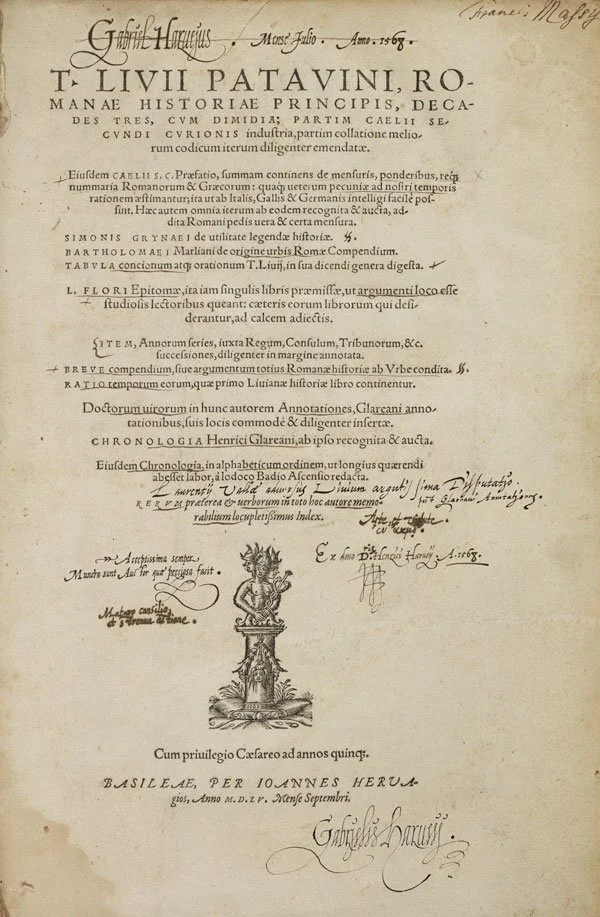 Francis Massy
Gabriel Haruejus. Mense Julio. Anno. 1568.
T. LIVII PATAVINI, RO-
MANAE HISTORIAE PRINCIPIS, DECA-
DES TRES, CVM DIMIDIA; PARTIM CAELII SE-
CVNDI CVRIONIS induſtria, partim collatione melio-
rum codicum iterum diligenter emendatæ.
Eiuſdem CAELII S. C. Præfatio, ſummam continens de menſuris, ponderibus, reqꝫ
nummaria Romanorum & Græcorum: quaqꝫ ueterum pecuniæ ad noſtri temporis
rationem æſtimantur; ita ut ab Italis, Gallis & Germanis intelligi facile poſ-
ſint. Hæc autem omnia iterum ab eodem recognita & aucta, ad-
dita Romani pedis uera & certa menſura.
SIMONIS GRYNAEI de utilitate legendæ hiſtoriæ.
BARTHOLOMAEI Marliani de origine urbis Romæ Compendium.
TABVLA concionum atqꝫ orationum T. Liuij, in ſua dicendi genera digeſta.
L. FLORI Epitomæ, ita iam ſingulis libris præmiſſæ, ut argumenti loco eſſe
ſtudioſis lectoribus queant: cæteris eorum librorum qui deſi-
derantur, ad calcem adiectis.
ITEM, Annorum ſeries, iuxta Regum, Conſulum, Tribunorum, &c.
ſucceſſiones, diligenter in margine annotata.
BREVE compendium, ſiue argumentum totius Romanæ hiſtoriæ ab Vrbe condita.
RATIO temporum eorum, quæ primo Liuianæ hiſtoriæ libro continentur.
Doctorum uirorum in hunc autorem Annotationes, Glareani anno-
tationibus, ſuis locis commodè & diligenter inſertæ.
CHRONOLOGIA Henrici Glareani, ab ipſo recognita & aucta.
Eiuſdem Chronologia, in alphabeticum ordinem, ut longius quærendi
abeſſet labor, à Iodoco Badio Aſcenſio redacta.
Laurentij Vallæ aduersus Liuium argutissima Disputatio,
post Glareani Annotationes.
RERVM præterea & uerborum in toto hoc autore memo-
rabilium locupletiſsimus Index.
Arte, et virtute
Ex dono Henrici Haruej A. 1568.
Acceptissima semper
Munera sunt Autor quæ preciosa facit.
Maturo consilio,
Cum priuilegio Cæſareo ad annos quinqꝫ.
BASILEAE, PER IOANNES HERVA-
gios, Anno M. D. LV. Menſe Septembri.
Gabrielis Haruejj.